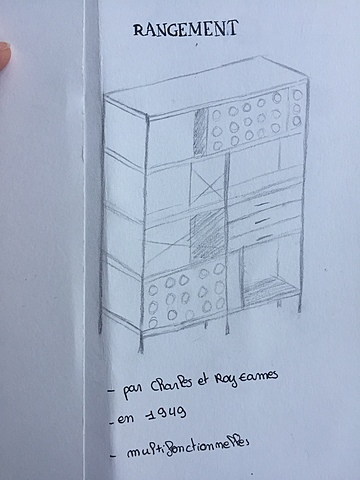 RANGEMENT
- par Charles et Roy Eames
- en 1949
- multifonctionnelles